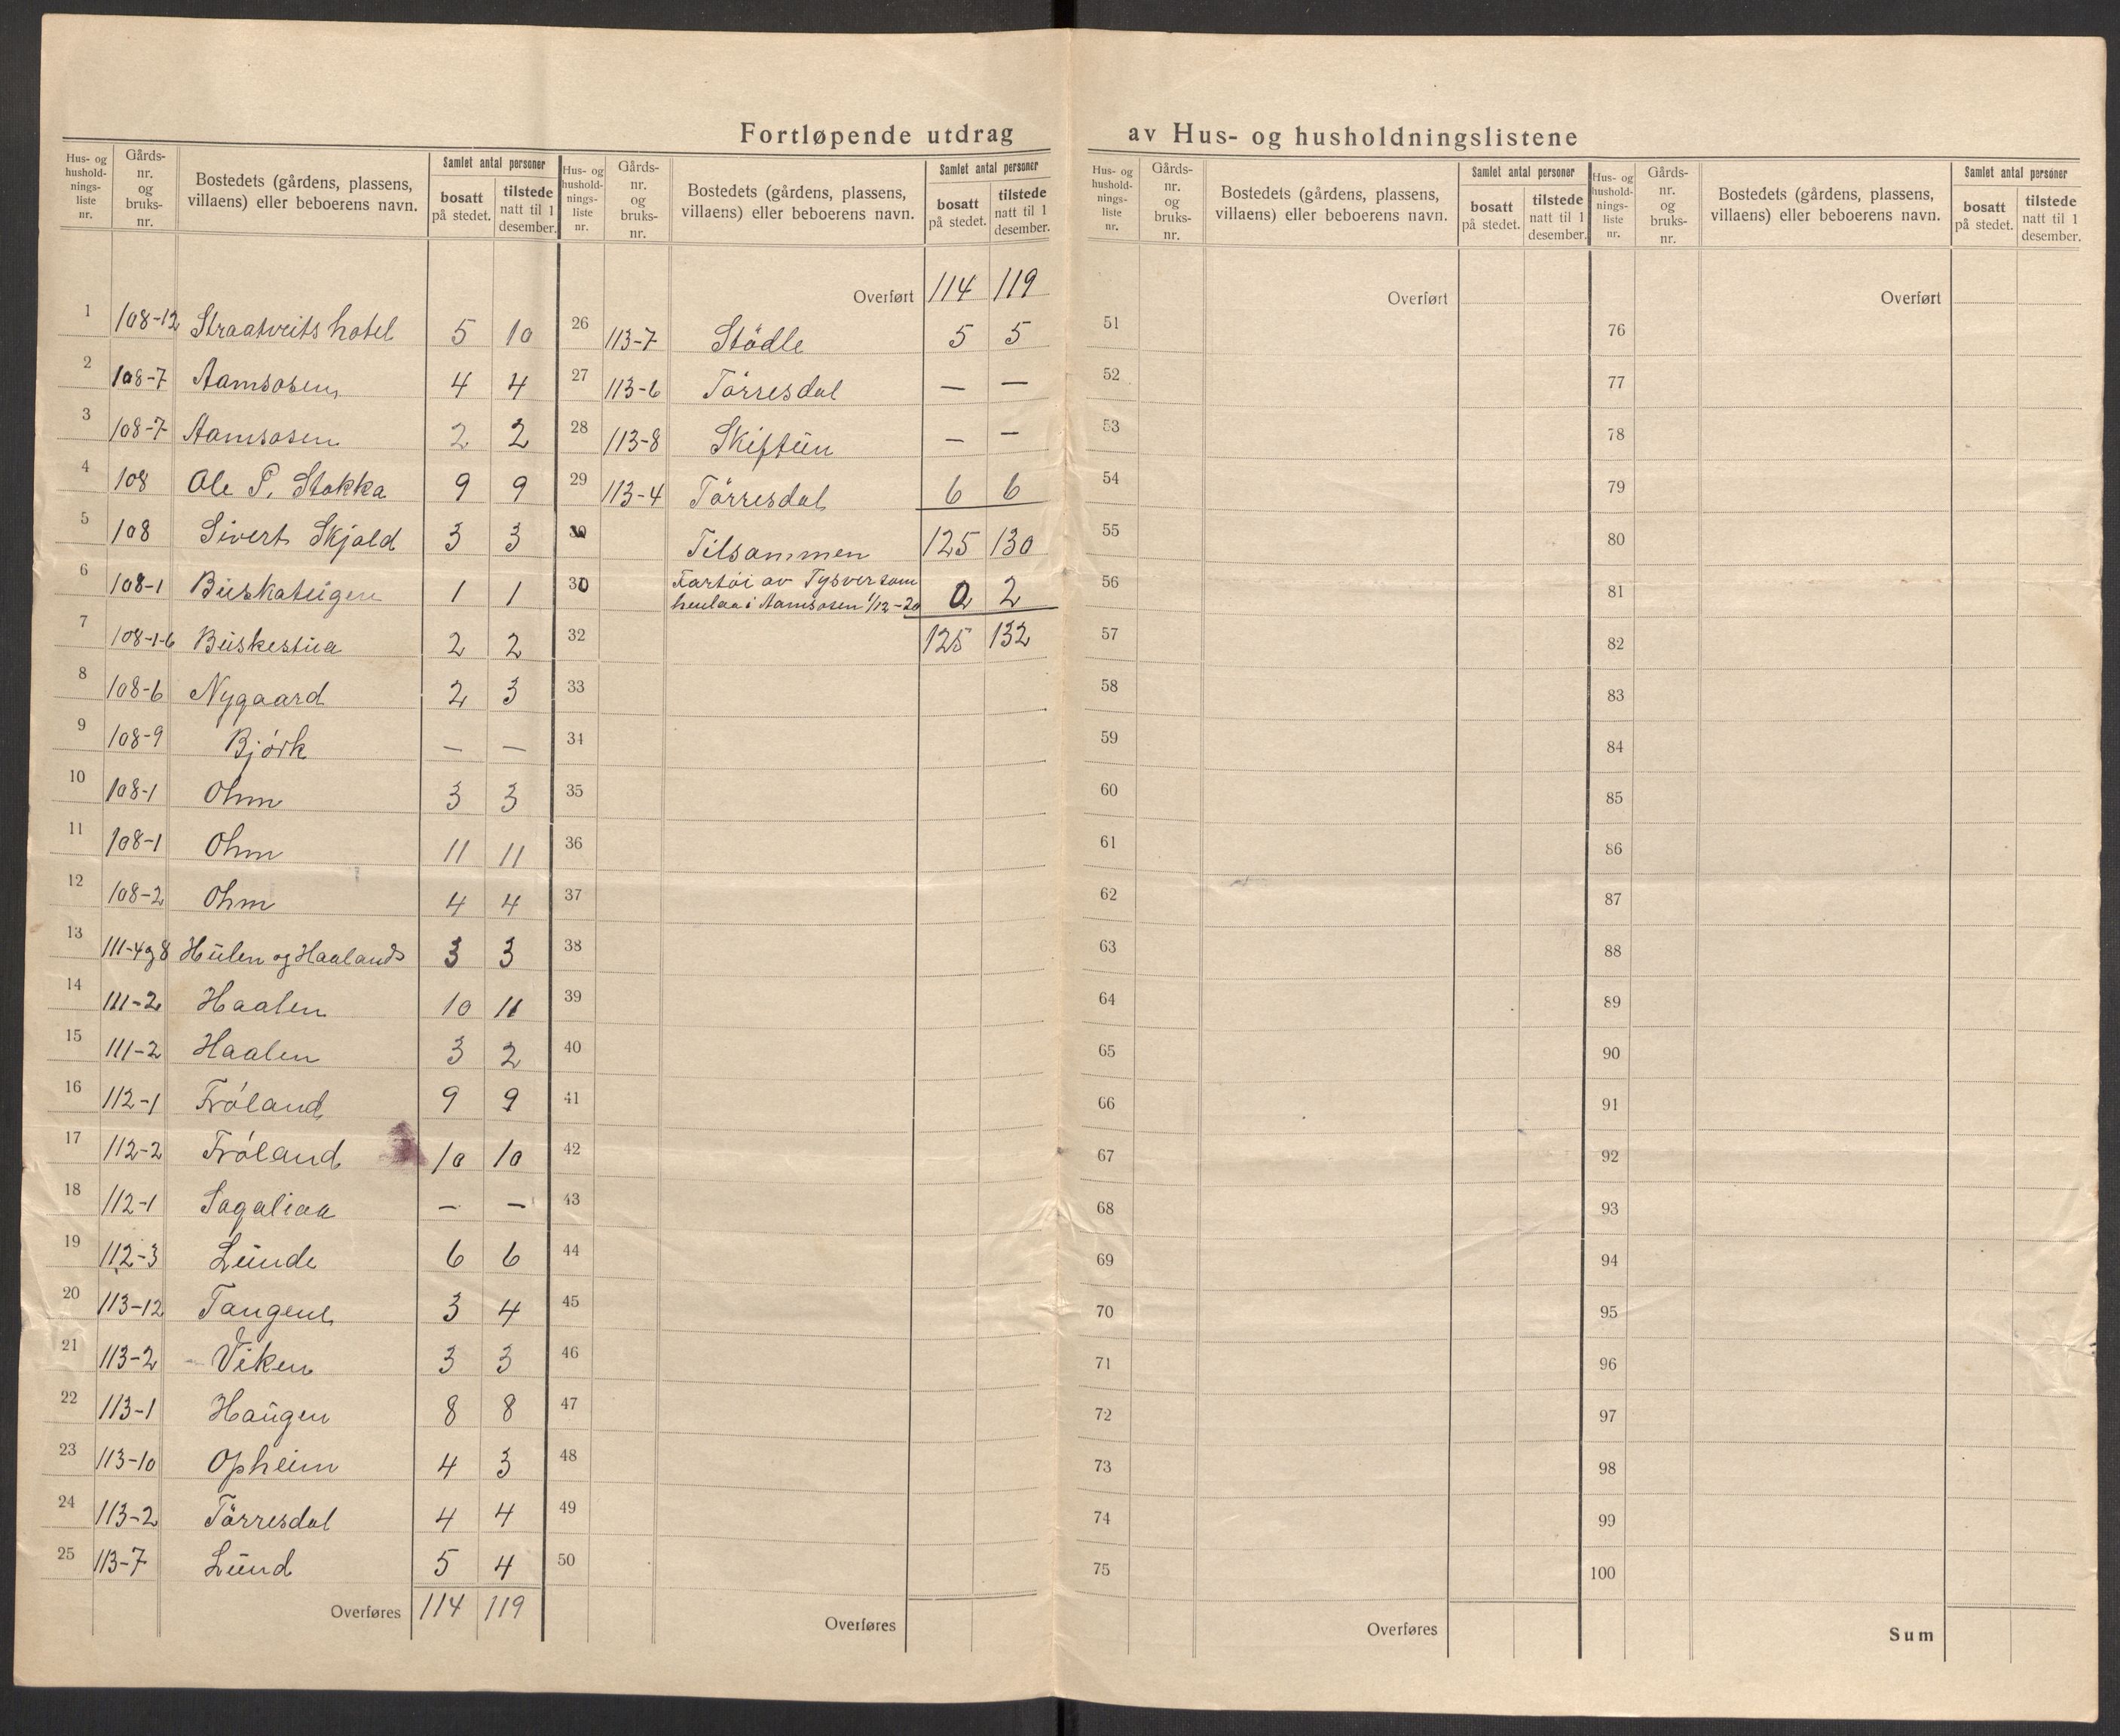 Fortløpende utdrag av Hus- og husholdningslistene
Hus- og hushold-nings-liste nr. | Gårds-nr. og bruks-nr. | Bostedets (gårdens, plassens, villaens) eller beboerens navn. | Samlet antal personer | bosatt på stedet. | tilstede natt til 1 desember.
1 108-12 Straatveits hotel 5 10
2 108-7 Aamsosen 4 4
3 108-7 Aamsosen 2 2
4 108 Ole P. Stokka 9 9
5 108 Sivert Skjold 3 3
6 108-1 Buskateigen 1 1
7 108-1-6 Buskestua 2 2
8 108-6 Nygaard 2 3
9 108-9 Bjørk — —
10 108-1 Ohm 3 3
11 108-1 Ohm 11 11
12 108-2 Ohm 4 4
13 111-4 og 8 Hulen og Haalands 3 3
14 111-2 Haalen 10 11
15 111-2 Haalen 3 2
16 112-1 Frøland 9 9
17 112-2 Frøland 10 10
18 112-1 Sagaliaa — —
19 112-3 Lunde 6 6
20 113-12 Tangene 3 4
21 113-2 Viken 3 3
22 113-1 Haugen 8 8
23 113-10 Opheim 4 3
24 113-2 Törresdal 4 4
25 113-7 Lund 5 4
Overføres 114 119
Hus- og hushold-nings-liste nr. | Gårds-nr. og bruks-nr. | Bostedets (gårdens, plassens, villaens) eller beboerens navn. | Samlet antal personer | bosatt på stedet. | tilstede natt til 1 desember.
Overført 114 119
26 113-7 Stödle 5 5
27 113-6 Törresdal — —
28 113-8 Skiftun — —
29 113-4 Törresdal 6 6
30 Tilsammen 125 130
30 Fartöi av Tysver som
henlaa i Aamsosen 1/12-20 0 2
32 125 132
33
34
35
36
37
38
39
40
41
42
43
44
45
46
47
48
49
50
Overføres
Hus- og hushold-nings-liste nr. | Gårds-nr. og bruks-nr. | Bostedets (gårdens, plassens, villaens) eller beboerens navn. | Samlet antal personer | bosatt på stedet. | tilstede natt til 1 desember.
Overført
51
52
53
54
55
56
57
58
59
60
61
62
63
64
65
66
67
68
69
70
71
72
73
74
75
Overføres
Hus- og hushold-nings-liste nr. | Gårds-nr. og bruks-nr. | Bostedets (gårdens, plassens, villaens) eller beboerens navn. | Samlet antal personer | bosatt på stedet. | tilstede natt til 1 desember.
Overført
76
77
78
79
80
81
82
83
84
85
86
87
88
89
90
91
92
93
94
95
96
97
98
99
100
Sum